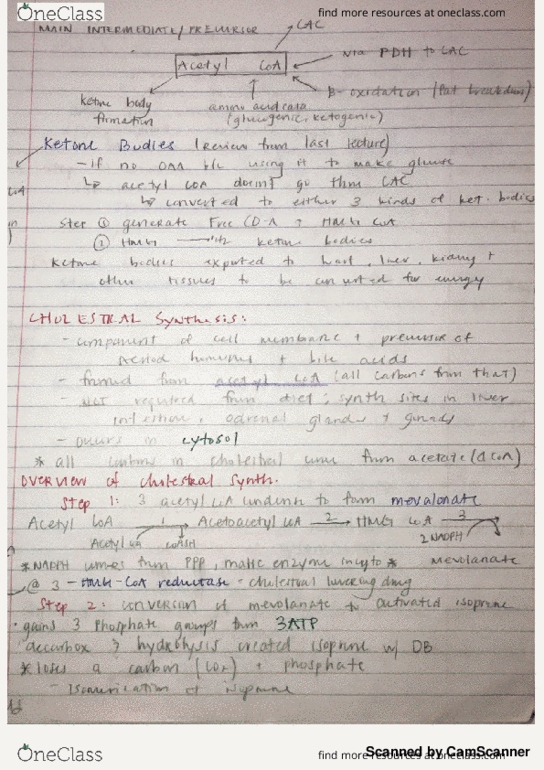 OneClass
find more resources at oneclass.com
MAIN INTERMEDIATE/PRECURSOR
CAC
Acetyl CoA
via PDH to CAC
β-oxidation (fat breakdown)
ketone body
formation
amino acid cata
(glucogenic, ketogenic)
Ketone Bodies (Review from last lecture)
- if no OAA b/c using it to make glucose
↳ acetyl COA doesn't go thru CAC
CoA
↳ converted to either 3 kinds of ket. bodies
Step ① generate Free CO-A + HMG CoA
② HMG → ketone bodies
Ketone bodies exported to heart, liver, kidney +
other tissues to be converted for energy
CHOLESTRAL Synthesis:
- component of cell membrane + precursor of
steroid hormones + bile acids
- formed from acetyl CoA (all carbons from that)
- NOT required from diet; synth sites in liver
intestine, adrenal glands + gonads
- occurs in cytosol
* all carbons in cholestral come from acetate (aCoA)
OVERVIEW of cholestral Synth.
Step 1: 3 acetyl CoA condense to form mevalonate
Acetyl CoA 1 Acetoacetyl CoA 2 HMG CoA 3
Acetyl CoA COASH 2 NADPH
* NADPH comes from PPP, malic enzyme in cyto * mevolanate
@ 3 - HMG-CoA reductase = cholestral lowering drug
Step 2: conversion of mevolanate to activated isoprene
· gains 3 Phosphate groups from 3ATP
decarbox + hydrolysis created isoprene w/ DB
* loses a carbon (CO₂) + phosphate
- Isomerization of isoprene
OneClass
find more resources at oneclass.com
Scanned by CamScanner